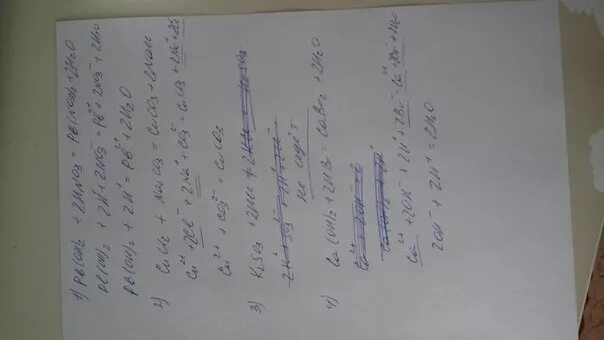 1) Pb(OH)₂ + 2HNO₃ = Pb(NO₃)₂ + 2H₂O
Pb(OH)₂ + 2H⁺ + 2NO₃⁻ = Pb²⁺ + 2NO₃⁻ + 2H₂O
Pb(OH)₂ + 2H⁺ = Pb²⁺ + 2H₂O
2) CuCl₂ + Na₂CO₃ = CuCO₃ + 2NaCl
Cu²⁺ + 2Cl⁻ + 2Na⁺ + CO₃²⁻ = CuCO₃ + 2Na⁺ + 2Cl⁻
Cu²⁺ + CO₃²⁻ = CuCO₃
3) K₂SO₃ + 2HCl ≠
не идёт
4) Ca(OH)₂ + 2HBr = CaBr₂ + 2H₂O
Ca²⁺ + 2OH⁻ + 2H⁺ + 2Br⁻ = Ca²⁺ + 2Br⁻ + 2H₂O
2OH⁻ + 2H⁺ = 2H₂O